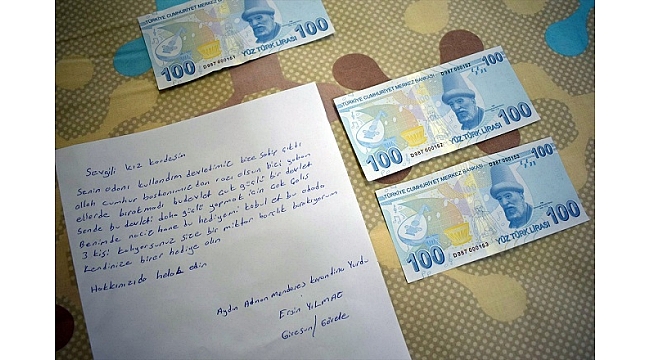 TÜRKİYE CUMHURİYET MERKEZ BANKASI
100
D987 000161
YÜZ TÜRK LİRASI
100
TÜRKİYE CUMHURİYET MERKEZ BANKASI
D987 000162
100
100
D987 000162
YÜZ TÜRK LİRASI
TÜRKİYE CUMHURİYET MERKEZ BANKASI
D987 000163
100
100
D987 000163
YÜZ TÜRK LİRASI
Sevgili kız kardeşim
Senin odanı kullandım devletimiz bize sahip çıktı
allah cumhur başkanımızdan razı olsun bizi yaban
ellerde bırakmadı bu devlet çok güçlü bir devlet
Sende bu devleti daha güçlü yapmak için çok çalış
Benimde naciz hane bu hediyemi kabul et bu odada
3 kişi kalıyorsunuz size bir miktar harçlık bırakıyorum
kendinize birer hediye alın
Hakkınızıda helal edin
Aydın Adnan Menderes Yurdu
Ersin YILMAZ
Giresun/Görele